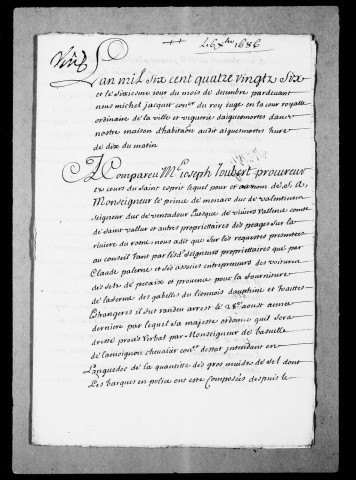 Le 6 xbre 1686
Lan mil six cent quatre vingtz six
et le sixiesme jour du mois de decembre pardevant
nous michel jacquet coner du roy juge en la cour royalle
ordinaire de la ville et viguerie daiguesmortes dans
nostre maison dhabitaon audit aiguesmortes hure
de dix du matin
A Compareu Me joseph Joubert procureur
ex cours du saint esprit lequel pour et au nom de S. A.
Monseigneur le prince de monaco duc de valentinois
seigneur duc de ventadour Evesque de viviers comte
de saint vallier et autres proprietaires des peages sur la
riviere du rosne nous a dit que sur les requestes presantées
au conseil tant par lesds seigneurs proprietaires que par
Claude palerne et ses assoiés entrepreneurs des voitures
des sels de pecaix et provence pour la fourniture
de la ferme des gabelles du lionnois dauphine et traittes
Estrangeres il fut randeu arrest le 28e aoust année
derniere par lequel sa majesté ordonne quil sera
dressé procés verbal par Monseigneur de basville
de lamoignon chevalier coner destat intendant en
Languedoc de la quantité des gros muidz de sel dont
Les barques en police ont esté Composées depuis le